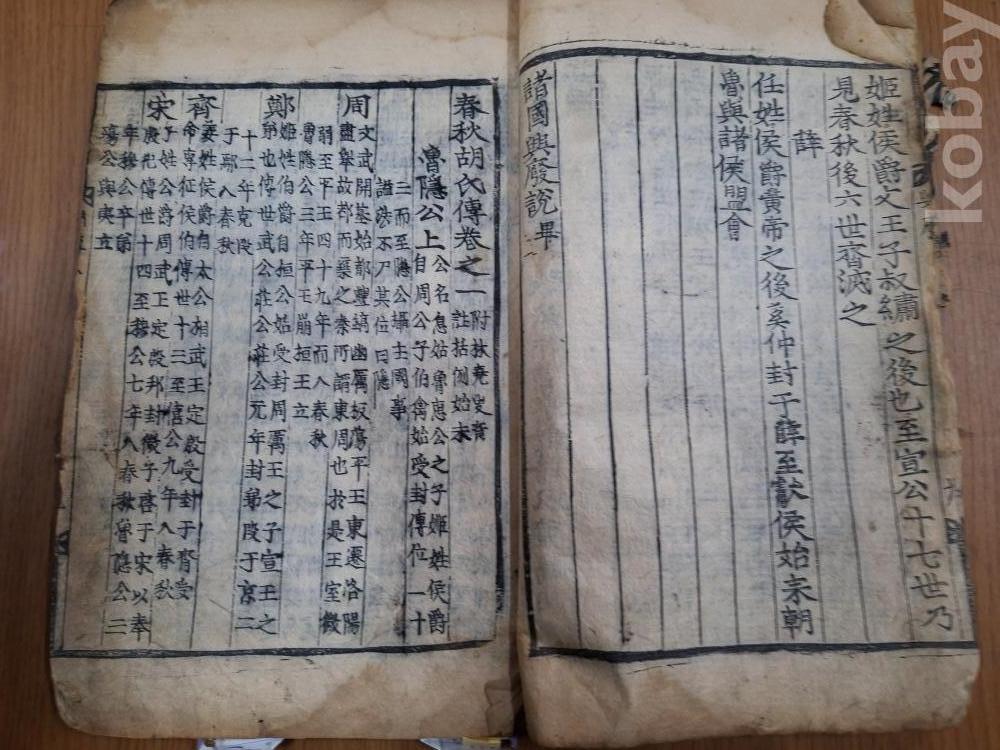 姬姓侯爵文王子叔繡之後也至宣公十七世乃
見春秋後六世齊滅之
薛
任姓侯爵黃帝之後奚仲封于薛至獻侯始來朝
魯與諸侯盟會
諸國興廢說畢
春秋胡氏傳卷之一
附林堯叟音
註括例始末
魯隱公上
公名息姑魯惠公之子姬姓侯爵
自周公子伯禽始受封傳位一十
三而至隱公攝主國事
諡法不尸其位曰隱
周
文武開基始都豐鎬幽厲板蕩平王東遷洛陽
盡舉故都而棄之秦所謂東周也於是王室微
弱至平王四十九年而入春秋
魯隱公三年平王崩桓王立
鄭
姬姓伯爵自桓公始受封周厲王之子宣王之
弟也傳世武公莊公莊公元年封弟段于京二
十二年克段
于鄢入春秋
齊
姜姓侯爵自太公相武王定殷受封于齊受
命專征侯伯傳世十三至僖公九年入春秋
宋
子姓公爵周武王定殷邦封微子啓于宋以奉
殷祀傳世十四至穆公七年入春秋魯隱公三
年穆公卒弟
殤公與夷立
kobay